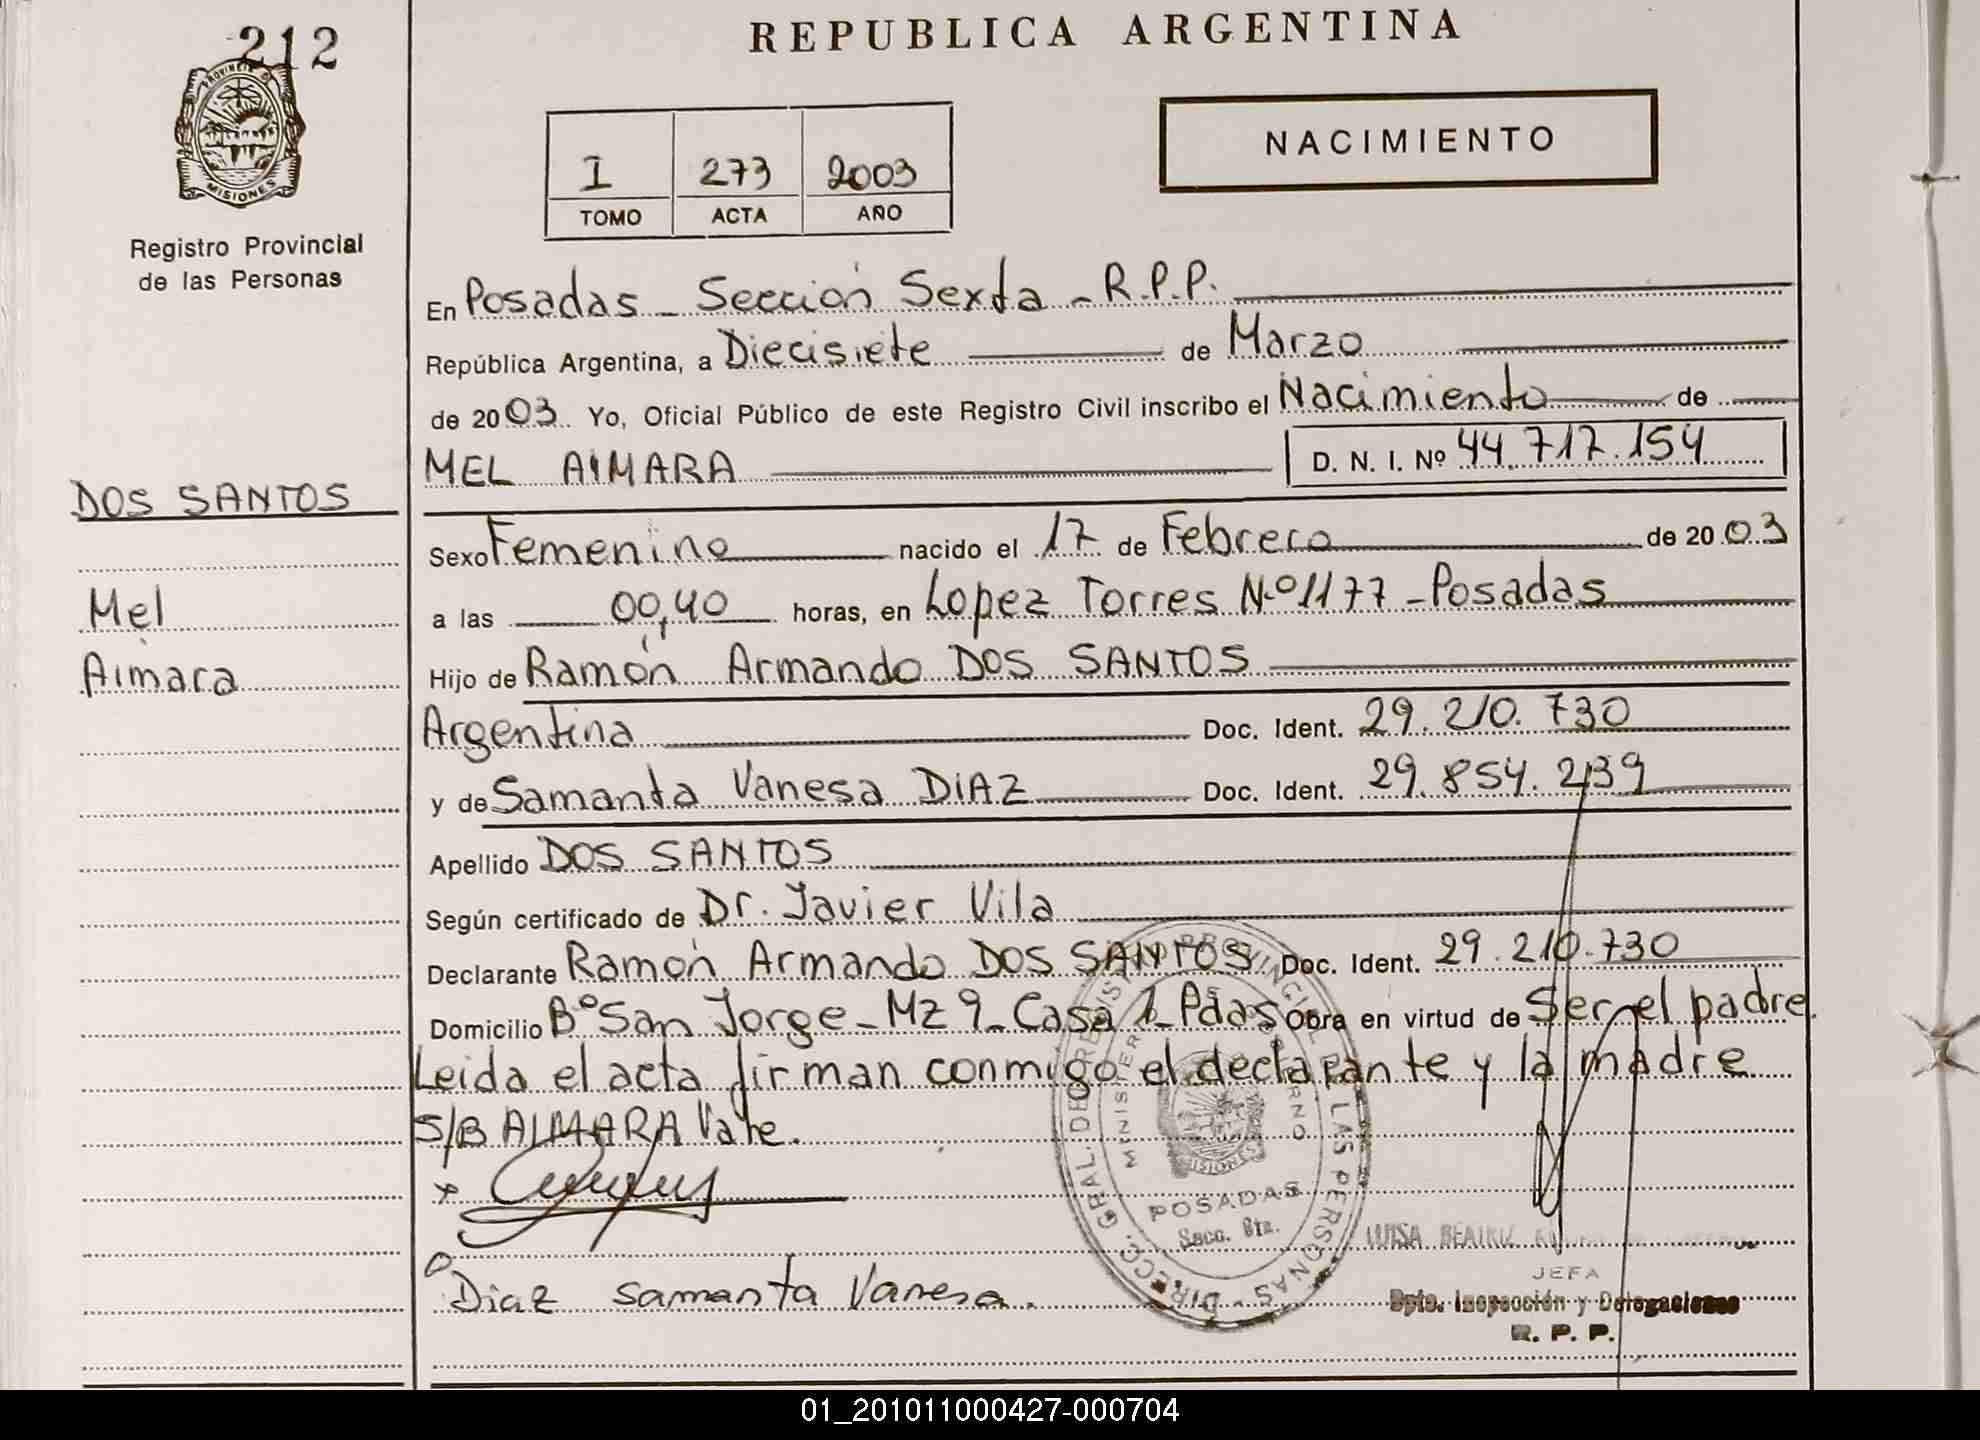 212
PROVINCIA DE
MISIONES
Registro Provincial
de las Personas
DOS SANTOS
Mel
Aimara
REPUBLICA ARGENTINA
NACIMIENTO
I 273 2003
TOMO ACTA AÑO
En Posadas - Sección Sexta - R.P.P.
República Argentina, a Diecisiete de Marzo
de 2003. Yo, Oficial Público de este Registro Civil inscribo el Nacimiento de
MEL AIMARA D. N. I. Nº 44.717.154
Sexo Femenino nacido el 17 de Febrero de 2003
a las 00,40 horas, en Lopez Torres Nº 1177 - Posadas
Hijo de Ramón Armando DOS SANTOS
Argentina Doc. Ident. 29.210.730
y de Samanta Vanesa DIAZ Doc. Ident. 29.854.239
Apellido DOS SANTOS
Según certificado de Dr. Javier Vila
Declarante Ramón Armando DOS SANTOS Doc. Ident. 29.210.730
Domicilio Bº San Jorge - Mz 9 - Casa 1 - Pdas Obra en virtud de Ser el padre.
Leida el acta firman conmigo el declarante y la madre
S/B AIMARA Vale.
Diaz Samanta Vanesa.
DIRECC. GRAL. DE REGISTRO PROVINCIAL DE LAS PERSONAS
MISIONES
POSADAS
Secc. 6ta.
LUISA BEATRIZ
JEFA
Dpto. Inspección y Delegaciones
R. P. P.
01_201011000427-000704